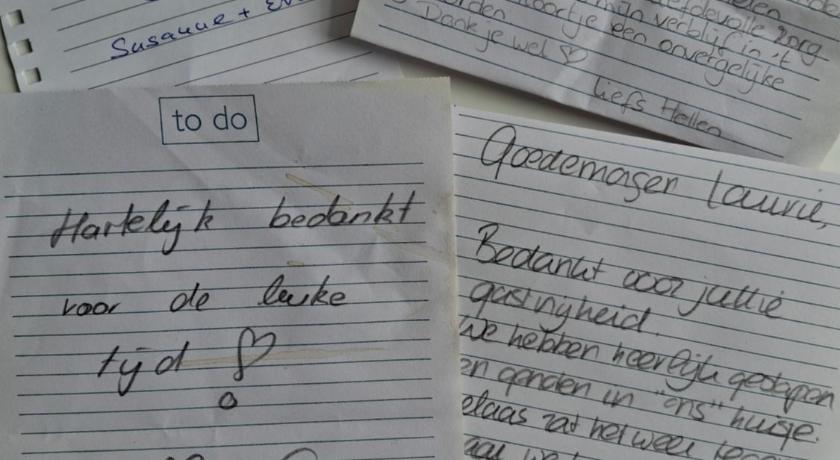 Susanne +
liefdevolle zorg
mijn verblijf in 't
kaartje een onvergetelijke
Dank je wel ♡
liefs Hellen
to do
Hartelijk bedankt
voor de leuke
tijd
Goedemorgen Laurie,
Bedankt voor jullie
gastvrijheid.
We hebben heerlijk geslapen
en genoten in "ons" huisje.
elaas zat het weer